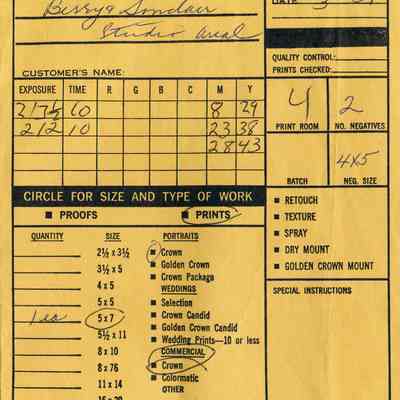 DATE 3
Berry & Sinclair
Studio
CUSTOMER'S NAME:
QUALITY CONTROL:
PRINTS CHECKED:
EXPOSURE TIME R G B C M Y
217½ 10 8 29
212 10 23 38
28 43
4 2
PRINT ROOM NO. NEGATIVES
4X5
BATCH NEG. SIZE
CIRCLE FOR SIZE AND TYPE OF WORK
■ PROOFS ■ PRINTS
■ RETOUCH
■ TEXTURE
■ SPRAY
■ DRY MOUNT
■ GOLDEN CROWN MOUNT
SPECIAL INSTRUCTIONS
QUANTITY SIZE PORTRAITS
2½ x 3½ ■ Crown
3½ x 5 ■ Golden Crown
4 x 5 ■ Crown Package
WEDDINGS
5 x 5 ■ Selection
1 ea 5 x 7 ■ Crown Candid
5½ x 11 ■ Golden Crown Candid
■ Wedding Prints—10 or less
8 x 10 COMMERCIAL
8 x 76 ■ Crown
11 x 14 ■ Colormatic
OTHER
16 x 20